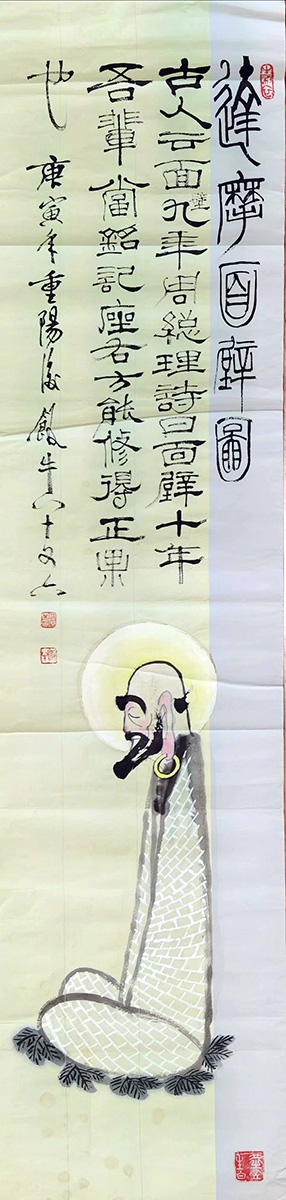 達摩面壁圖
古人云面壁九年周總理詩曰面壁十年
吾輩當銘記座右方能修得正果
也
庚寅年重陽後飯牛八十又六